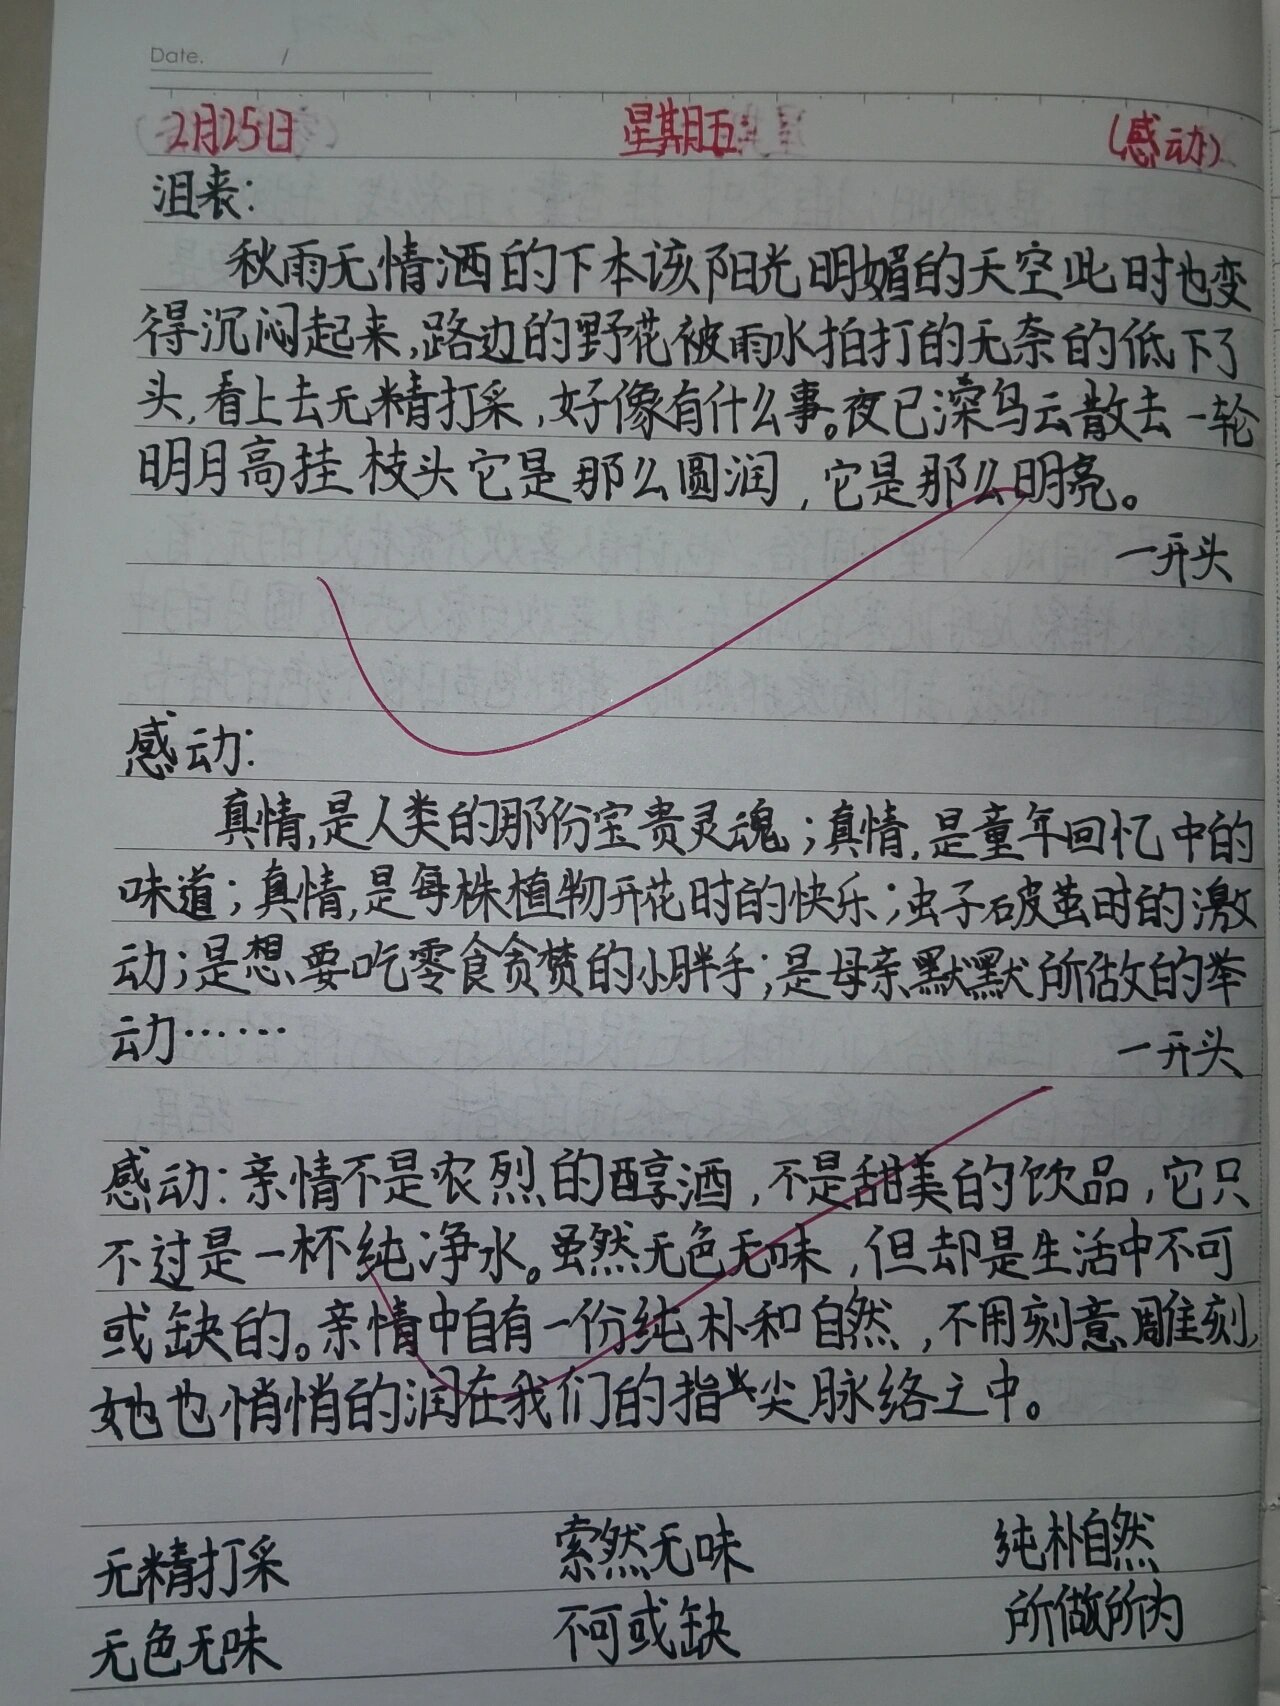 Date. /
2月25日 星期五 (感动)
沮丧:
秋雨无情洒的下本该阳光明媚的天空此时也变
得沉闷起来,路边的野花被雨水拍打的无奈的低下了
头,看上去无精打采,好像有什么事。夜已深乌云散去一轮
明月高挂枝头它是那么圆润,它是那么明亮。
一开头
感动:
真情,是人类的那份宝贵灵魂;真情,是童年回忆中的
味道;真情,是每株植物开花时的快乐;虫子破茧时的激
动;是想要吃零食贪婪的小胖手;是母亲默默所做的举
动……
一开头
感动:亲情不是农烈的醇酒,不是甜美的饮品,它只
不过是一杯纯净水。虽然无色无味,但却是生活中不可
或缺的。亲情中自有一份纯朴和自然,不用刻意雕刻,
她也悄悄的润在我们的指尖脉络之中。
无精打采 索然无味 纯朴自然
无色无味 不可或缺 所做所为